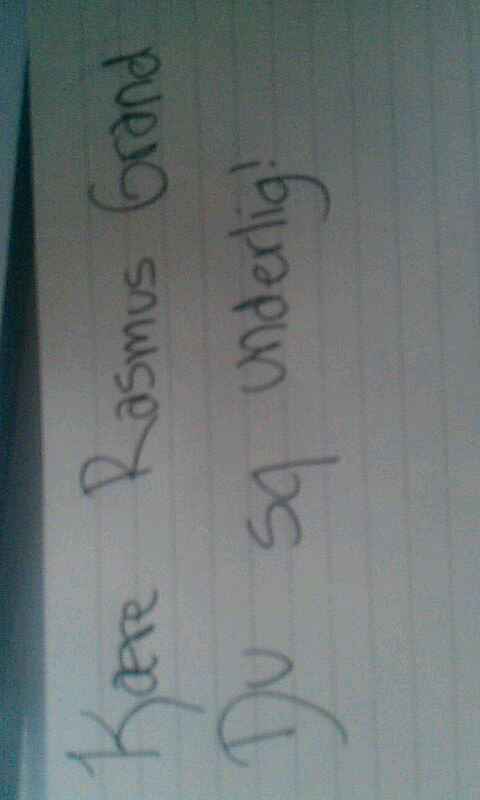 Kære Rasmus Grand
Du sq underlig!